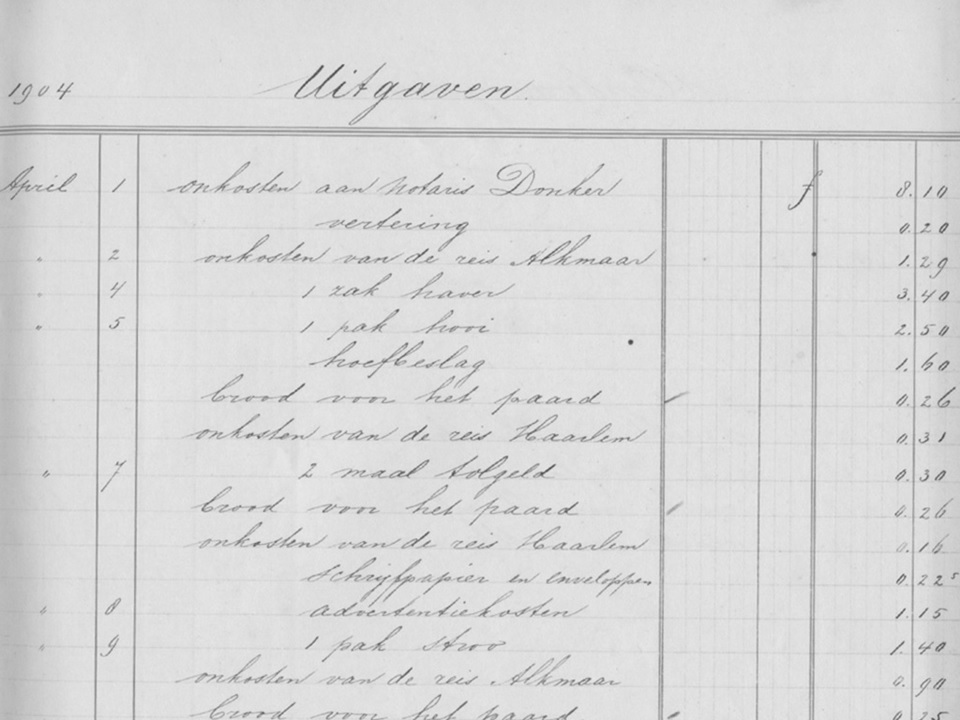 1904 Uitgaven.
April 1 onkosten aan notaris Donker f 8.10
vertering 0.20
" 2 onkosten van de reis Alkmaar 1.29
" 4 1 zak haver 3.40
" 5 1 pak hooi 2.50
hoefbeslag 1.60
brood voor het paard 0.26
onkosten van de reis Haarlem 0.31
" 7 2 maal tolgeld 0.30
brood voor het paard 0.26
onkosten van de reis Haarlem 0.16
schrijfpapier en enveloppen 0.22⁵
" 8 advertentiekosten 1.15
" 9 1 pak stroo 1.40
onkosten van de reis Alkmaar 0.90
brood voor het paard 0.25